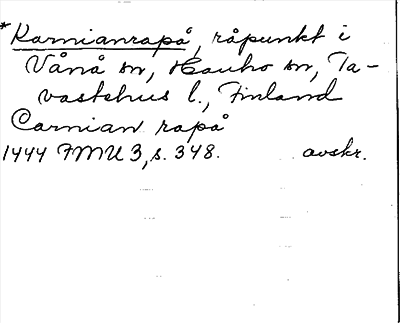 *Karnianrapå, råpunkt i
Vånå sn, Hauho sn, Ta-
vastehus l., Finland
Carnian rapå
1444 FMU 3, s. 348. avskr.